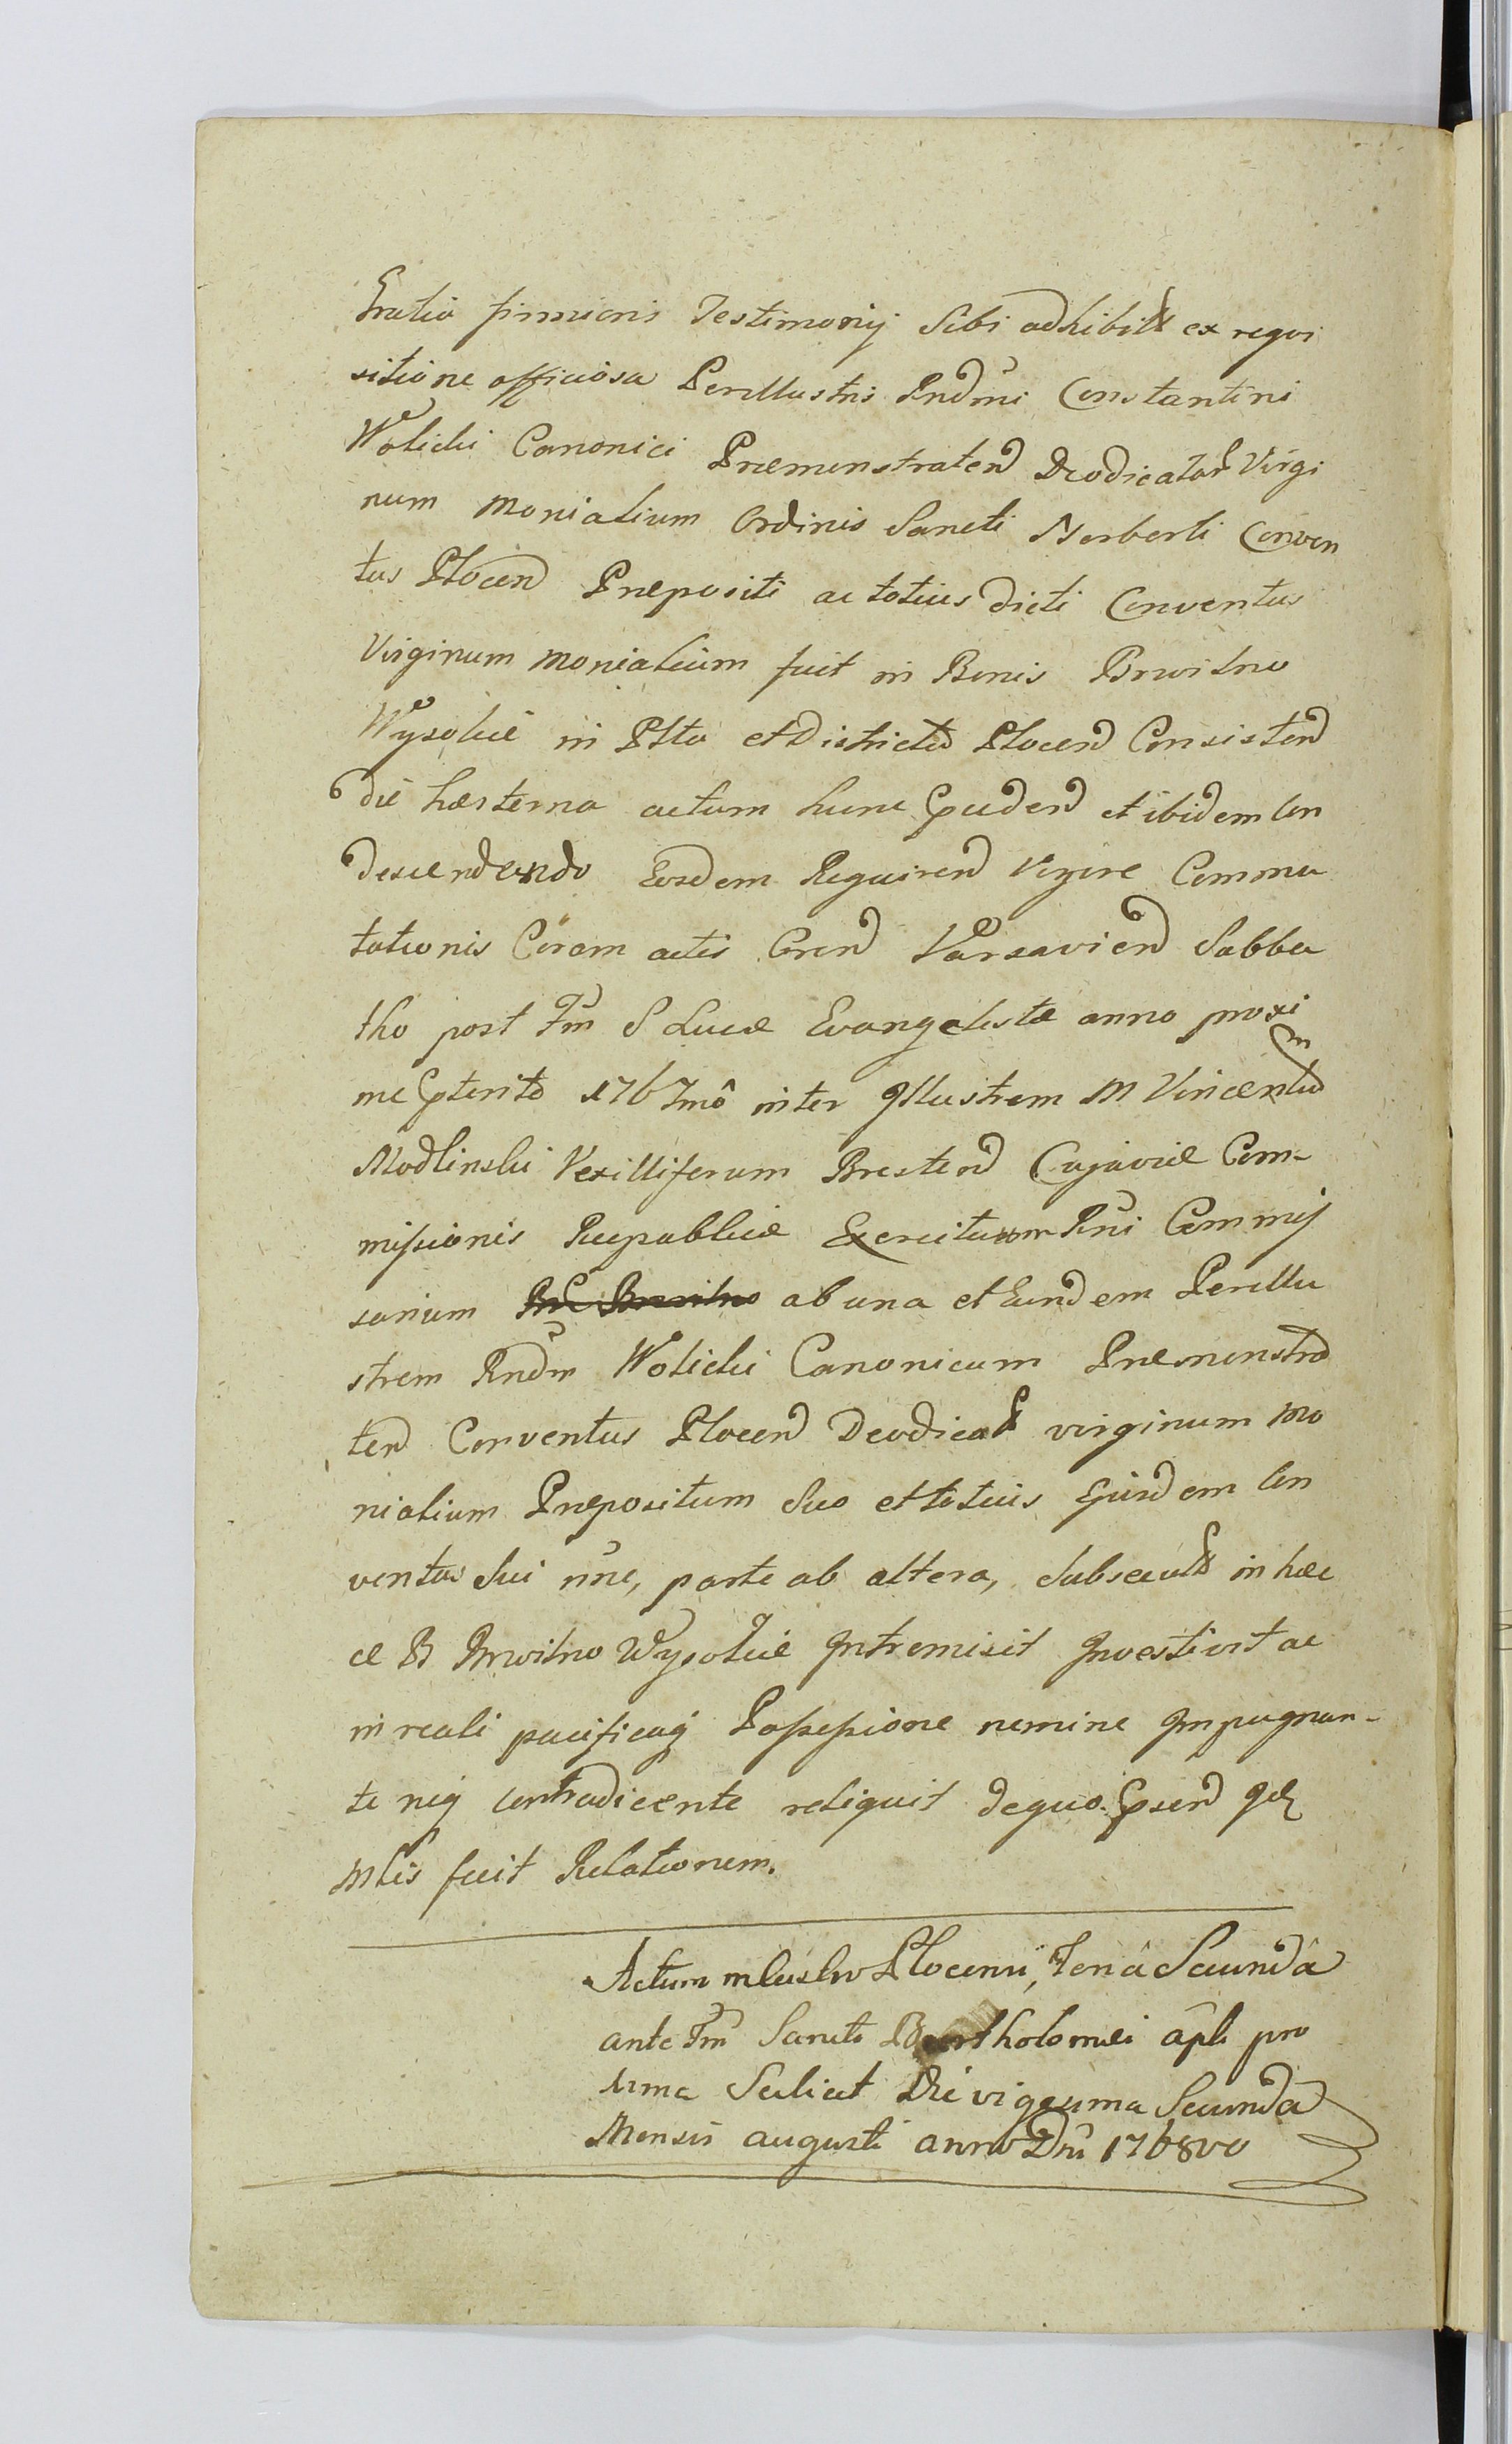 Gratio firmioris Testimonij Sibi adhibit ex requi
sitione officiosa Perillustris Rndmi Constantini
Wolicki Canonici Præmonstraten Deodicatar Virgi
num Monialium Ordinis Sancti Norberti Conven
tus Plocen Præpositi ac totius dicti Conventus
Virginum Monialium fuit in Bonis Brwilno
Wysokie in Pltu et Districtu Plocen Consisten
die hæsterna actum hunc Pceden et ibidem Con
descendendo Eosdem Requiren Vigore Commu
tationis Coram actis Cren Varsavien Sabba
tho post Fm S Lucæ Evangelistæ anno proxi
me Pterito 1767mô inter Illustrem M Vincentiu
Modlinski Vexilliferum Bresten Cujaviæ Com-
missionis Reipublicæ Exercituum Rni Commis
sarium ab una et Eundem Perillu
strem Rndm Wolicki Canonicum Præmonstra
ten Conventus Plocen Deodicat virginum Mo
nialium Præpositum Suo et totius Ejusdem Con
ventus Sui nne, parte ab altera, Subsecut in hæc
ce B Brwilno Wysokie Intromisit Investivit ac
in reali pacificaq Possessione nemine Impugnan-
te neq contradicente reliquit de quo Psen
Mlis fecit Relationem.
Actum in Castro Plocensi, Feria Secundâ
ante Fm Sancti Bartholomæi apli pro
xima Scilicet Die vigesima Secundâ
Mensis augusti anno Dni 1768vo